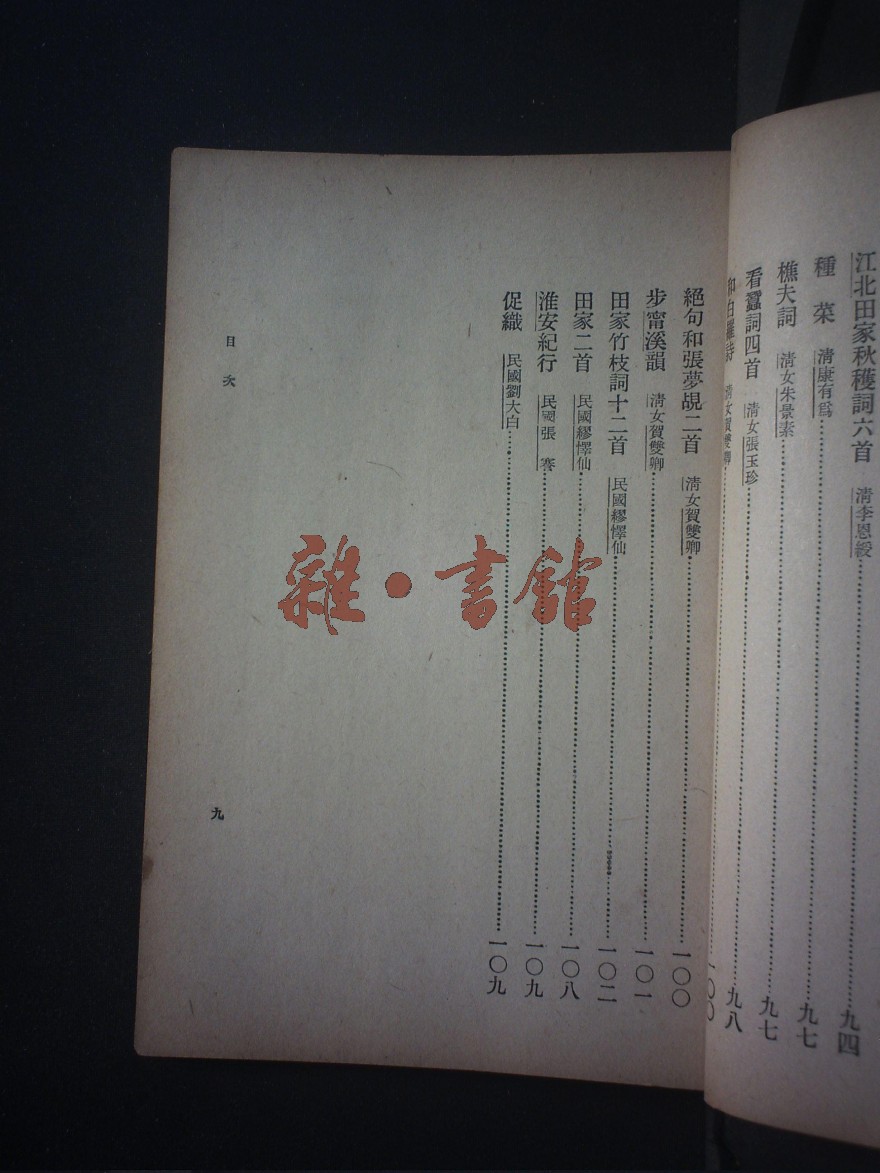 江北田家秋穫詞六首 清李恩綬 九四
種菜 清康有爲 九七
樵夫詞 清女朱景素 九七
看蠶詞四首 清女張玉珍 九八
和白羅詩 清女賀雙卿 一〇〇
絕句和張夢覘二首 清女賀雙卿 一〇〇
步甯溪韻 清女賀雙卿 一〇一
田家竹枝詞十二首 民國繆懌仙 一〇二
田家二首 民國繆懌仙 一〇八
淮安紀行 民國張謇 一〇九
促織 民國劉大白 一〇九
目次
九
雜·書館